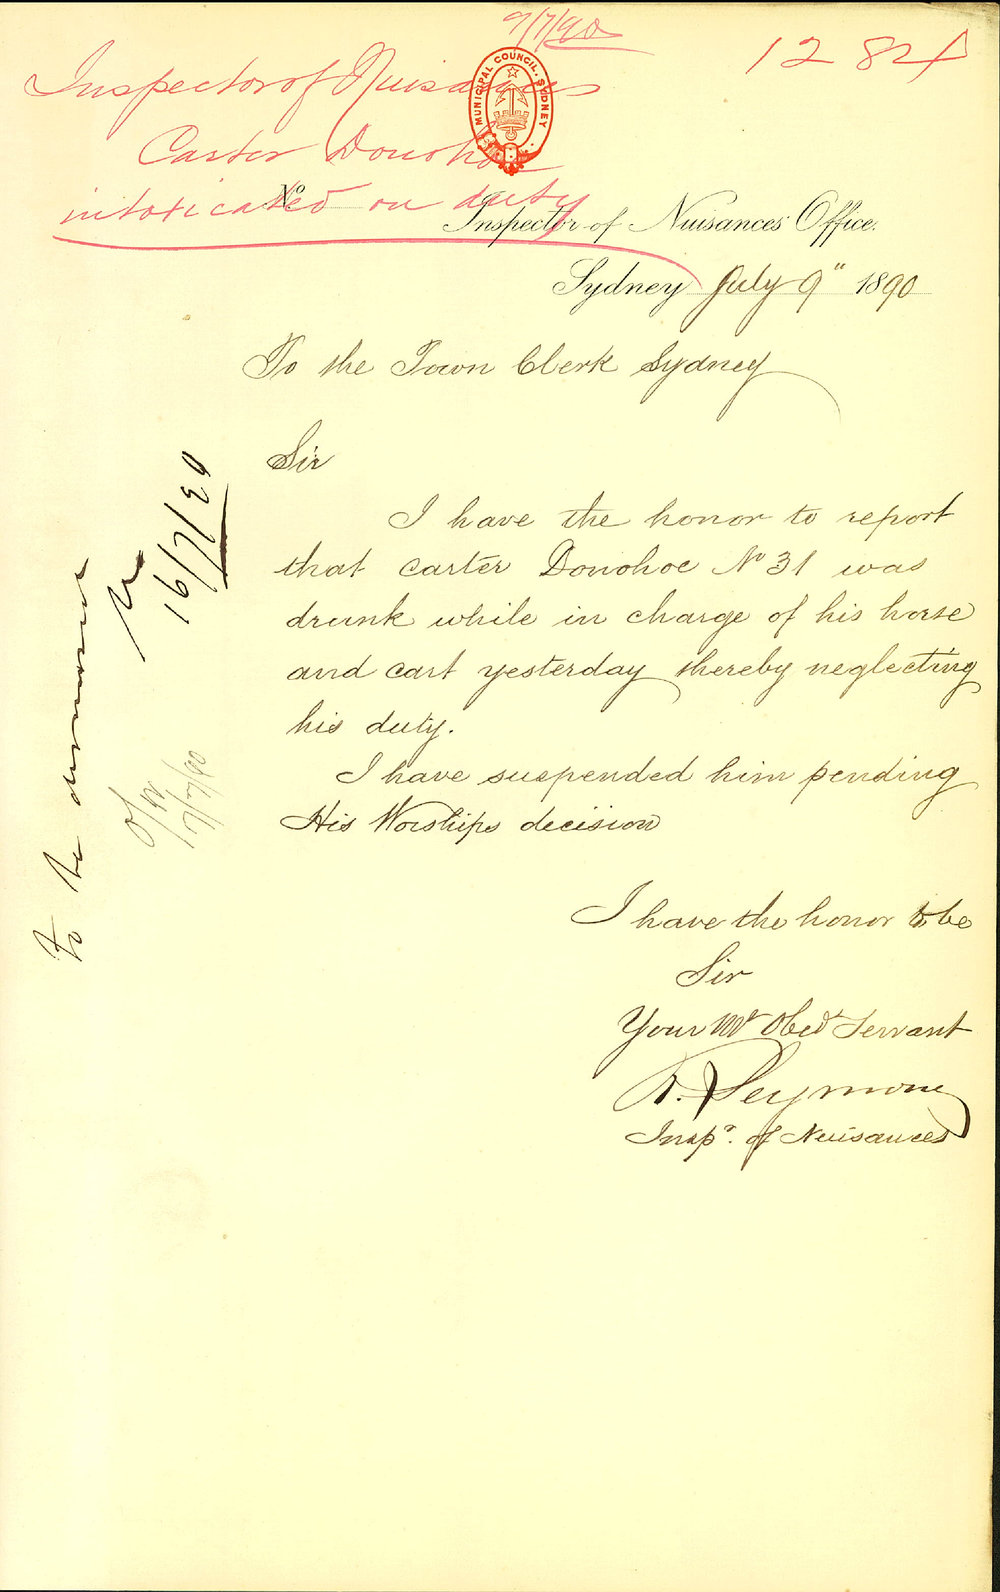 9/7/90
1284
Inspector of Nuisances
Carter Donohoe
intoxicated on duty
MUNICIPAL COUNCIL. SYDNEY
No
Inspector of Nuisances Office.
Sydney July 9" 1890
To the Town Clerk Sydney
Sir
I have the honor to report
that carter Donohoe No 31 was
drunk while in charge of his horse
and cart yesterday thereby neglecting
his duty.
I have suspended him pending
His Worships decision
I have the honor to be
Sir
Your Mt Obedt Servant
R. Seymour
Inspr. of Nuisances
To be dismissed
16/7/90
9/7/90